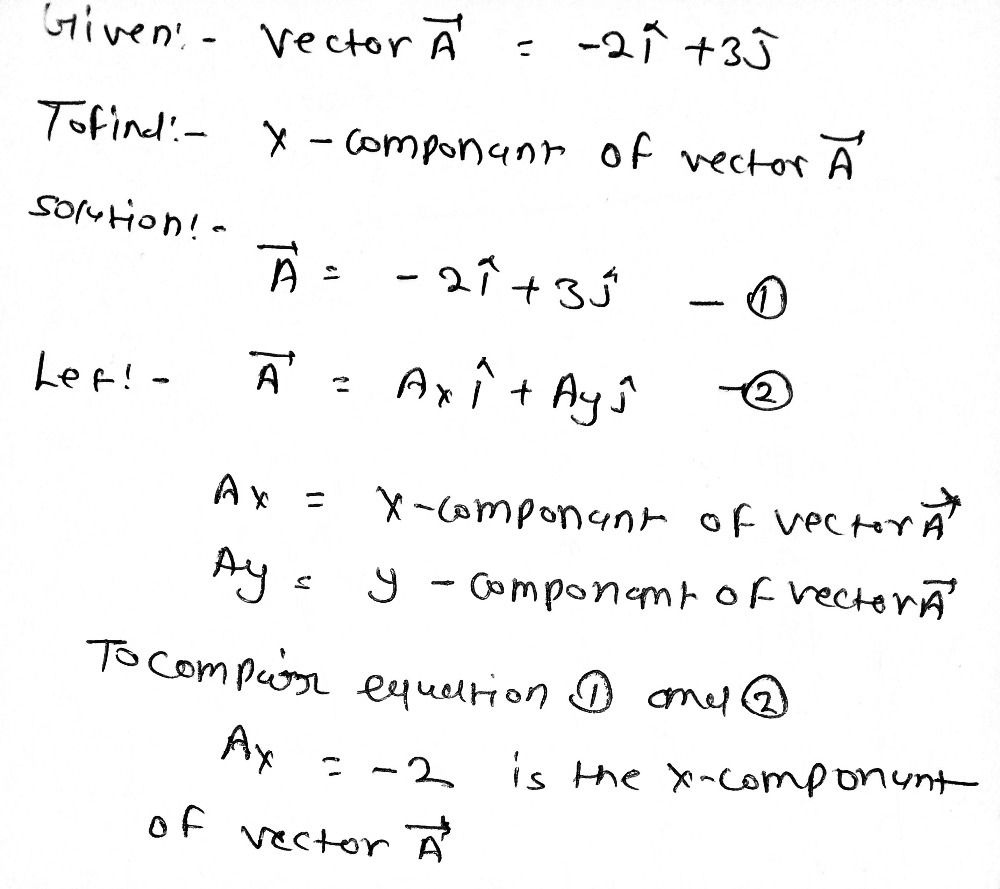 Given:- Vector A⃗ = -2î +3ĵ
Tofind:- X - component of vector A⃗
Solution:-
A⃗ = - 2î + 3ĵ - ①
Let:- A⃗ = Axî + Ayĵ - ②
Ax = X-component of vector A⃗
Ay = y - component of vector A⃗
To compair equation ① and ②
Ax = -2 is the x-component
of vector A⃗